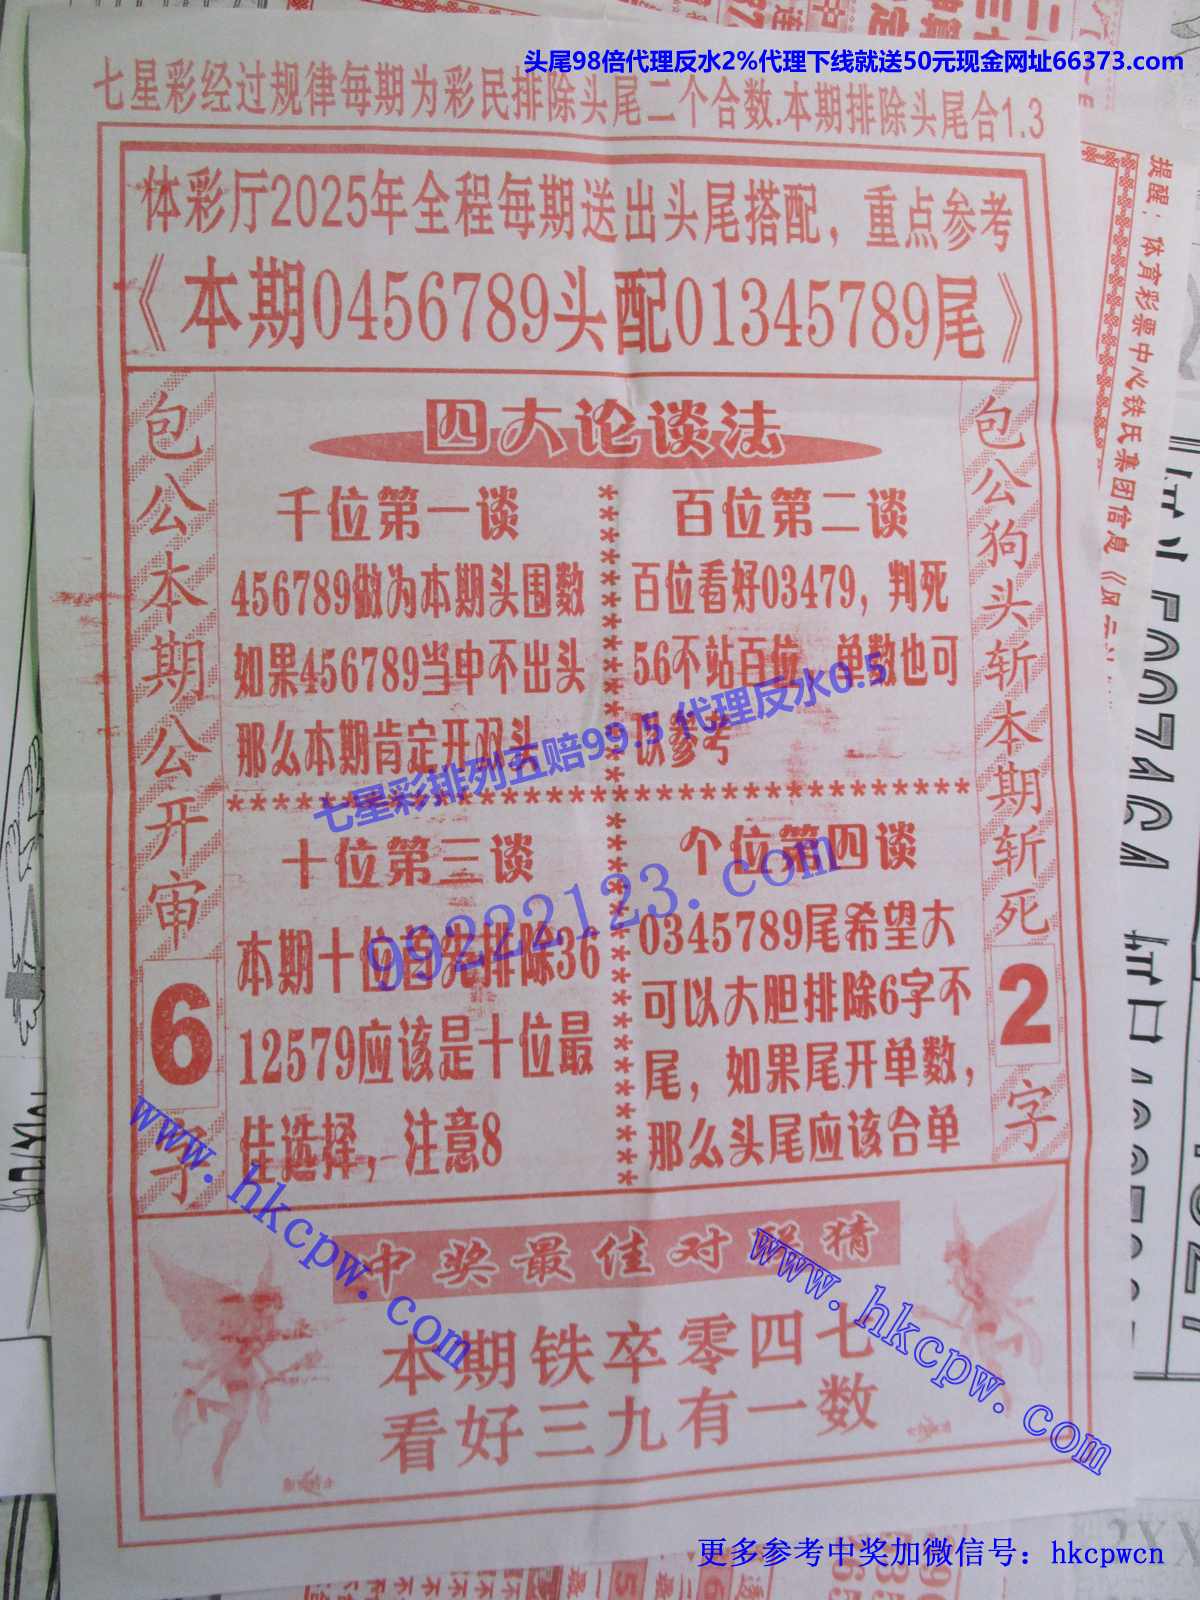 头尾98倍代理反水2%代理下线就送50元现金网址66373.com
七星彩经过规律每期为彩民排除头尾二个合数.本期排除头尾合1.3
体彩厅2025年全程每期送出头尾搭配，重点参考
《本期0456789头配01345789尾》
包公本期公开审
6
字
四大论谈法
千位第一谈
456789做为本期头围数
如果456789当中不出头
那么本期肯定开双头
百位第二谈
百位看好03479，判死
56不站百位，单数也可
以参考
七星彩排列五赔99.5 代理反水0.5
十位第三谈
本期十位首先排除36
12579应该是十位最
佳选择，注意8
99222123.com
个位第四谈
0345789尾希望大
可以大胆排除6字不
尾，如果尾开单数，
那么头尾应该合单
包公狗头斩本期斩死
2
字
提醒：体育彩票中心铁氏集团信息《风
www.hkcpw.com
www.hkcpw.com
中奖最佳对联猜
本期铁卒零四七
看好三九有一数
更多参考中奖加微信号：hkcpwcn